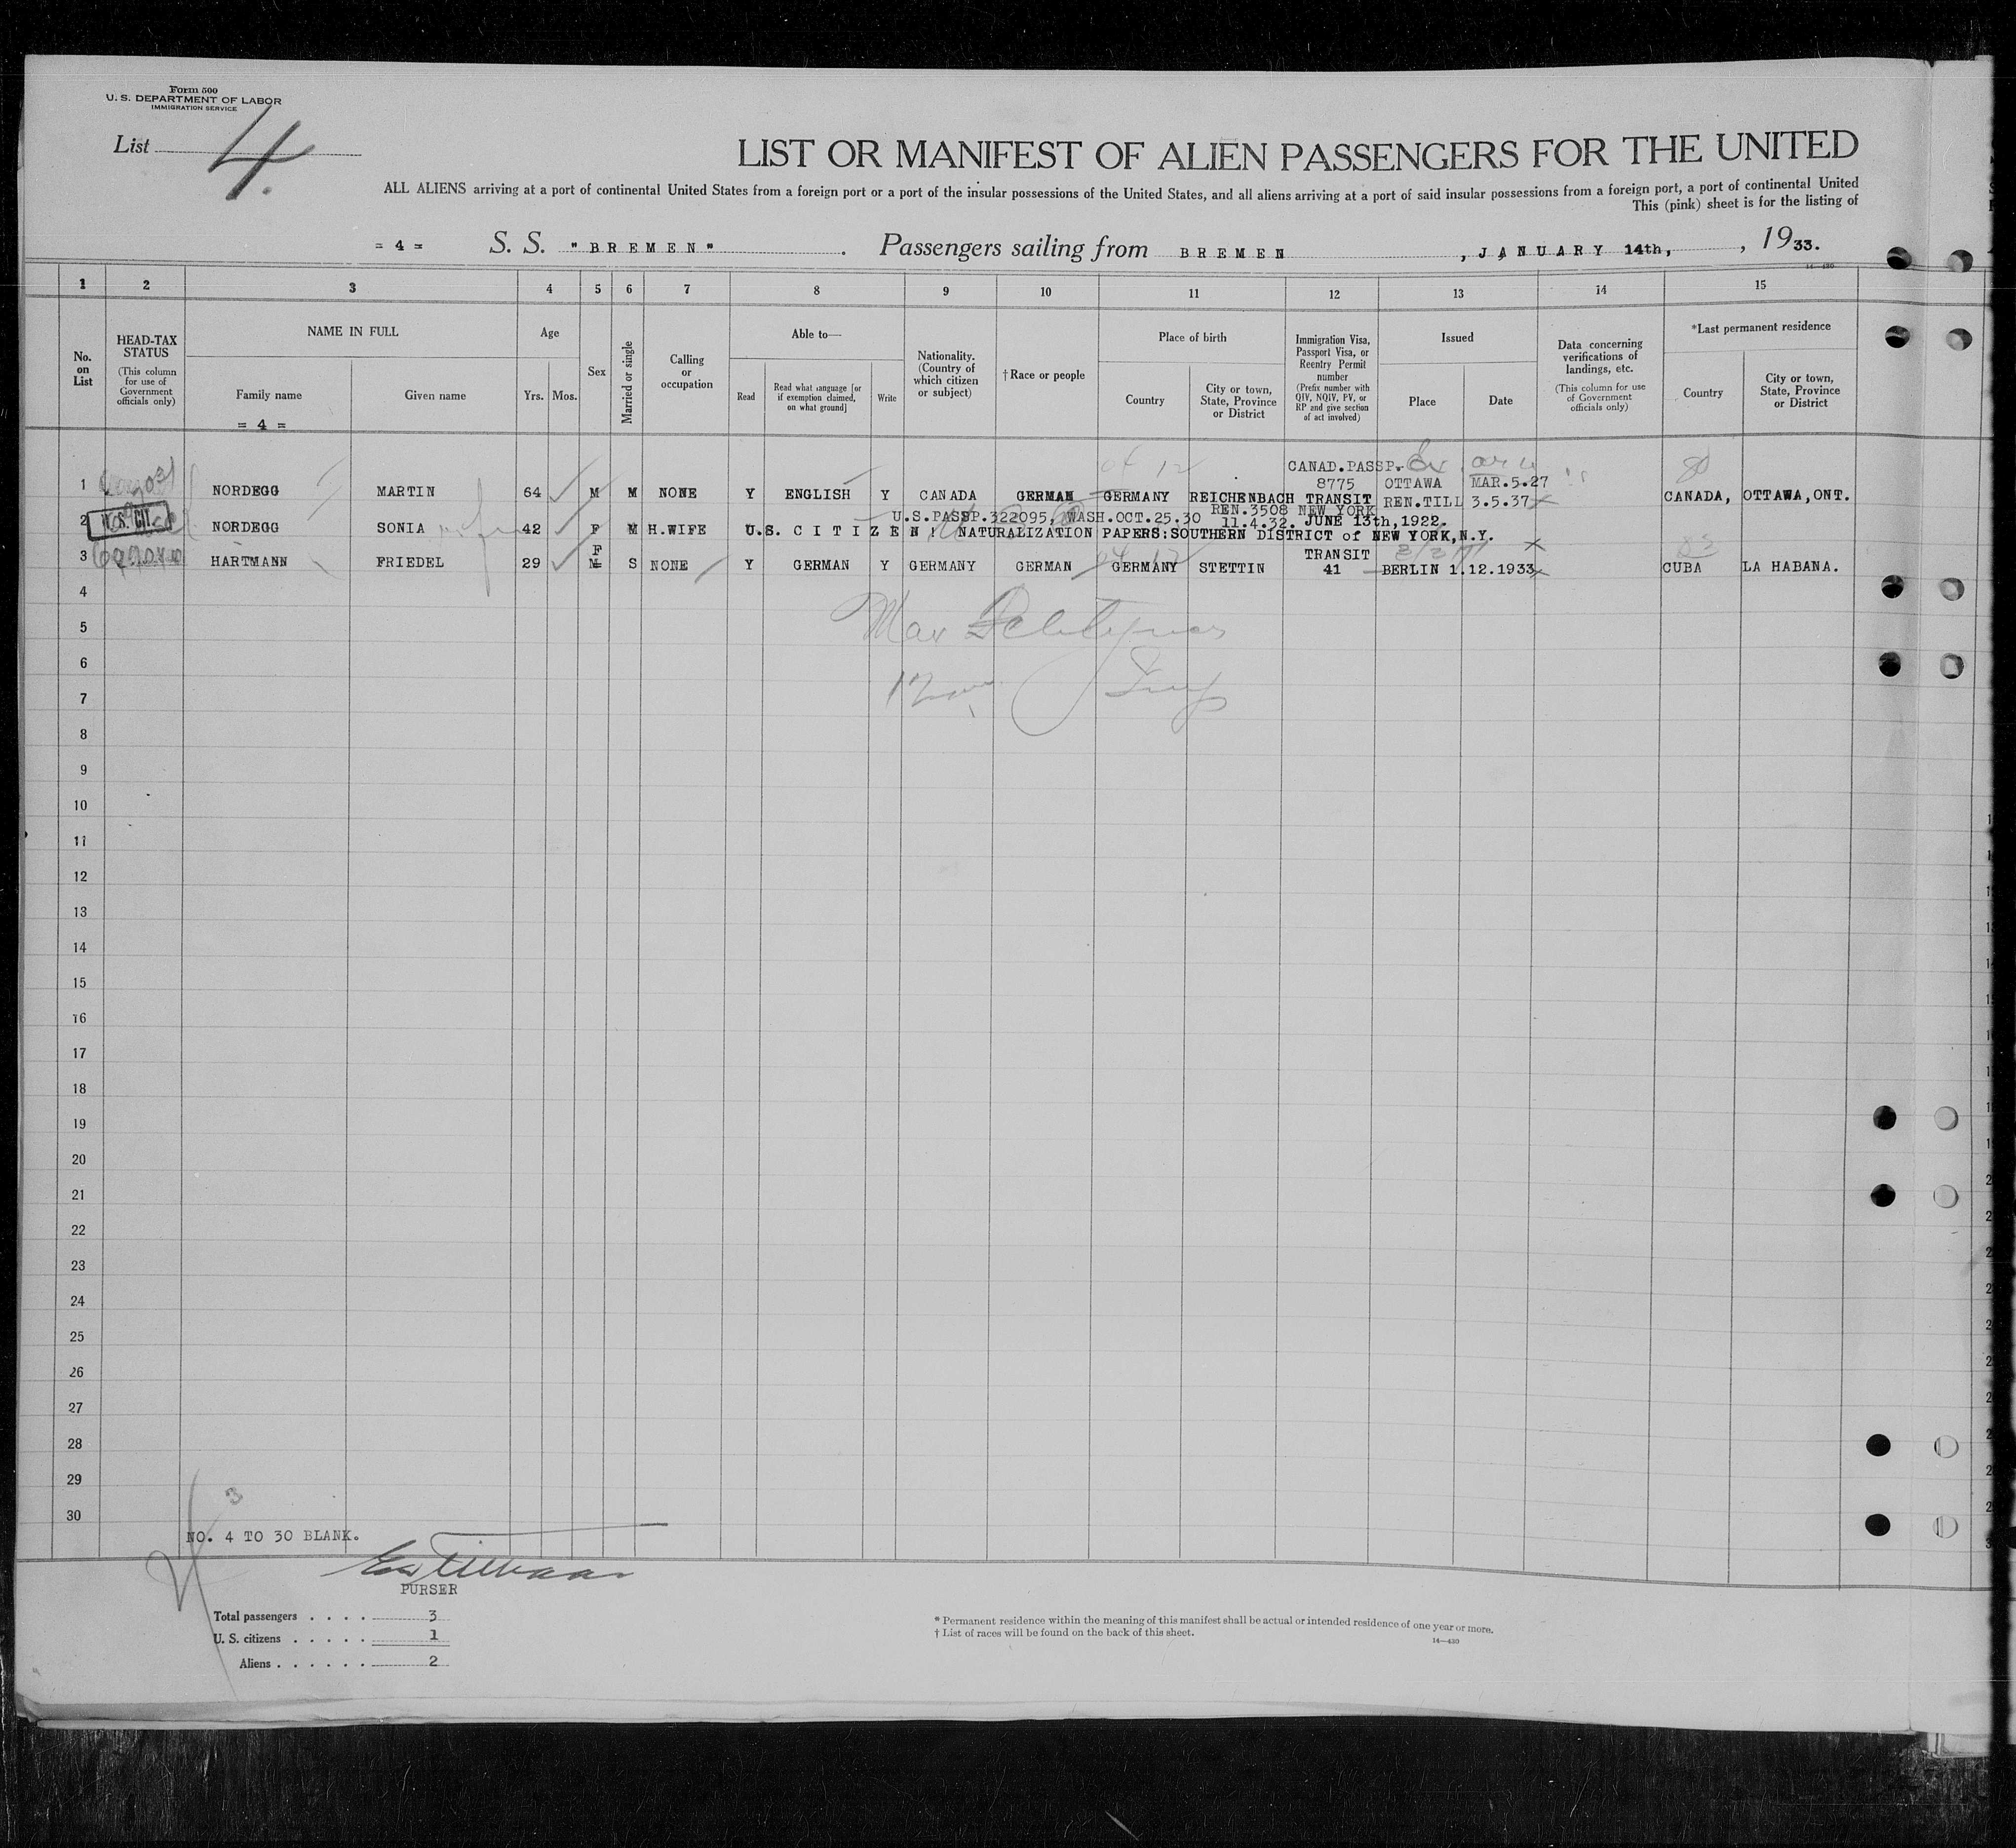 Form 500
U. S. DEPARTMENT OF LABOR
IMMIGRATION SERVICE
List 4.
LIST OR MANIFEST OF ALIEN PASSENGERS FOR THE UNITED
ALL ALIENS arriving at a port of continental United States from a foreign port or a port of the insular possessions of the United States, and all aliens arriving at a port of said insular possessions from a foreign port, a port of continental United
This (pink) sheet is for the listing of
= 4 = S. S. "BREMEN". Passengers sailing from BREMEN, JANUARY 14th, , 1933.
14—430
1 2 3 4 5 6 7 8 9 10 11 12 13 14 15
No. on List
HEAD-TAX STATUS (This column for use of Government officials only)
NAME IN FULL
Family name
Given name
= 4 =
Age
Yrs. Mos.
Sex
Married or single
Calling or occupation
Able to—
Read
Read what language [or if exemption claimed, on what ground]
Write
Nationality. (Country of which citizen or subject)
† Race or people
Place of birth
Country
City or town, State, Province or District
Immigration Visa, Passport Visa, or Reentry Permit number (Prefix number with QIV, NQIV, PV, or RP and give section of act involved)
Issued
Place
Date
Data concerning verifications of landings, etc. (This column for use of Government officials only)
*Last permanent residence
Country
City or town, State, Province or District
CANAD.PASSP.
8775 OTTAWA MAR.5.27
1 NORDEGG MARTIN 64 M M NONE Y ENGLISH Y CANADA GERMAN GERMANY REICHENBACH TRANSIT REN.TILL 3.5.37 CANADA, OTTAWA,ONT.
U.S.PASSP.322095, WASH.OCT.25.30 REN.3508 NEW YORK
11.4.32. JUNE 13th,1922.
2 U.S. CIT. NORDEGG SONIA 42 F M H.WIFE U.S. CITIZEN! NATURALIZATION PAPERS:SOUTHERN DISTRICT of NEW YORK,N.Y.
F TRANSIT
3 HARTMANN FRIEDEL 29 M S NONE Y GERMAN Y GERMANY GERMAN GERMANY STETTIN 41 BERLIN 1.12.1933 CUBA LA HABANA.
4
5
6
7
8
9
10
11
12
13
14
15
16
17
18
19
20
21
22
23
24
25
26
27
28
29
3
30
NO. 4 TO 30 BLANK.
PURSER
Total passengers . . . . 3
U. S. citizens . . . . . 1
Aliens . . . . . . 2
* Permanent residence within the meaning of this manifest shall be actual or intended residence of one year or more.
† List of races will be found on the back of this sheet.
14—430